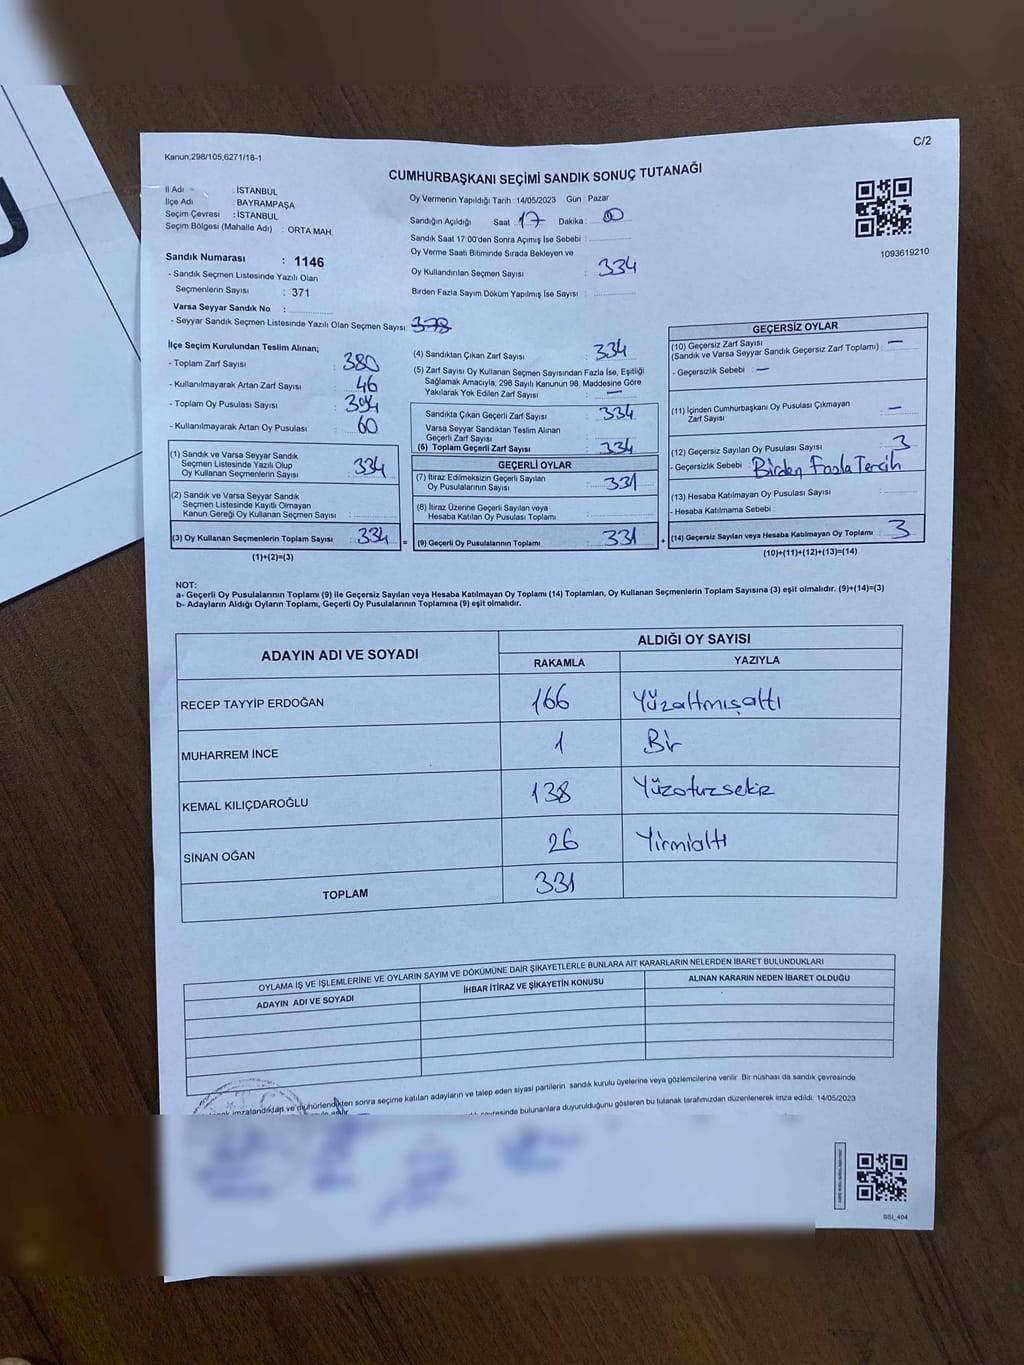 C/2
Kanun:298/105,6271/18-1
CUMHURBAŞKANI SEÇİMİ SANDIK SONUÇ TUTANAĞI
İl Adı : İSTANBUL
İlçe Adı : BAYRAMPAŞA
Seçim Çevresi : İSTANBUL
Seçim Bölgesi (Mahalle Adı) : ORTA MAH.
Sandık Numarası : 1146
- Sandık Seçmen Listesinde Yazılı Olan
Seçmenlerin Sayısı : 371
Varsa Seyyar Sandık No :
- Seyyar Sandık Seçmen Listesinde Yazılı Olan Seçmen Sayısı 378
Oy Vermenin Yapıldığı Tarih : 14/05/2023 Gün : Pazar
Sandığın Açıldığı Saat : 17 Dakika : 00
Sandık Saat 17:00'den Sonra Açımış İse Sebebi :
Oy Verme Saati Bitiminde Sırada Bekleyen ve
Oy Kullandırılan Seçmen Sayısı : 334
Birden Fazla Sayım Döküm Yapılmış İse Sayısı :
1093619210
İlçe Seçim Kurulundan Teslim Alınan;
- Toplam Zarf Sayısı : 380
- Kullanılmayarak Artan Zarf Sayısı : 46
- Toplam Oy Pusulası Sayısı : 394
- Kullanılmayarak Artan Oy Pusulası : 60
(1) Sandık ve Varsa Seyyar Sandık
Seçmen Listesinde Yazılı Olup
Oy Kullanan Seçmenlerin Sayısı : 334
(2) Sandık ve Varsa Seyyar Sandık
Seçmen Listesinde Kayıtlı Olmayan
Kanun Gereği Oy Kullanan Seçmen Sayısı :
(3) Oy Kullanan Seçmenlerin Toplam Sayısı : 334 =
(1)+(2)=(3)
(4) Sandıktan Çıkan Zarf Sayısı : 334
(5) Zarf Sayısı Oy Kullanan Seçmen Sayısından Fazla İse, Eşitliği
Sağlamak Amacıyla, 298 Sayılı Kanunun 98. Maddesine Göre
Yakılarak Yok Edilen Zarf Sayısı : —
Sandıkta Çıkan Geçerli Zarf Sayısı : 334
Varsa Seyyar Sandıktan Teslim Alınan
Geçerli Zarf Sayısı :
(6) Toplam Geçerli Zarf Sayısı : 334
GEÇERLİ OYLAR
(7) İtiraz Edilmeksizin Geçerli Sayılan
Oy Pusulalarının Sayısı : 331
(8) İtiraz Üzerine Geçerli Sayılan veya
Hesaba Katılan Oy Pusulası Toplamı :
(9) Geçerli Oy Pusulalarının Toplamı : 331 +
GEÇERSİZ OYLAR
(10) Geçersiz Zarf Sayısı : —
(Sandık ve Varsa Seyyar Sandık Geçersiz Zarf Toplamı)
- Geçersizlik Sebebi : —
(11) İçinden Cumhurbaşkanı Oy Pusulası Çıkmayan
Zarf Sayısı : —
(12) Geçersiz Sayılan Oy Pusulası Sayısı : 3
- Geçersizlik Sebebi : Birden Fazla Tercih
(13) Hesaba Katılmayan Oy Pusulası Sayısı :
- Hesaba Katılmama Sebebi :
(14) Geçersiz Sayılan veya Hesaba Katılmayan Oy Toplamı : 3
(10)+(11)+(12)+(13)=(14)
NOT:
a- Geçerli Oy Pusulalarının Toplamı (9) ile Geçersiz Sayılan veya Hesaba Katılmayan Oy Toplamı (14) Toplamları, Oy Kullanan Seçmenlerin Toplam Sayısına (3) eşit olmalıdır. (9)+(14)=(3)
b- Adayların Aldığı Oyların Toplamı, Geçerli Oy Pusulalarının Toplamına (9) eşit olmalıdır.
ADAYIN ADI VE SOYADI
ALDIĞI OY SAYISI
RAKAMLA YAZIYLA
RECEP TAYYİP ERDOĞAN 166 Yüzaltmışaltı
MUHARREM İNCE 1 Bir
KEMAL KILIÇDAROĞLU 138 Yüzotuzsekiz
SİNAN OĞAN 26 Yirmialtı
TOPLAM 331
OYLAMA İŞ VE İŞLEMLERİNE VE OYLARIN SAYIM VE DÖKÜMÜNE DAİR ŞİKAYETLERLE BUNLARA AİT KARARLARIN NELERDEN İBARET BULUNDUKLARI
ADAYIN ADI VE SOYADI İHBAR İTİRAZ VE ŞİKAYETİN KONUSU ALINAN KARARIN NEDEN İBARET OLDUĞU
imzalandıktan ve mühürlendikten sonra seçime katılan adayların ve talep eden siyasi partilerin sandık kurulu üyelerine veya gözlemcilerine verilir Bir nüshası da sandık çevresinde
bulunanlara duyurulduğunu gösteren bu tutanak tarafımızdan düzenlenerek imza edildi. 14/05/2023
SSI_404